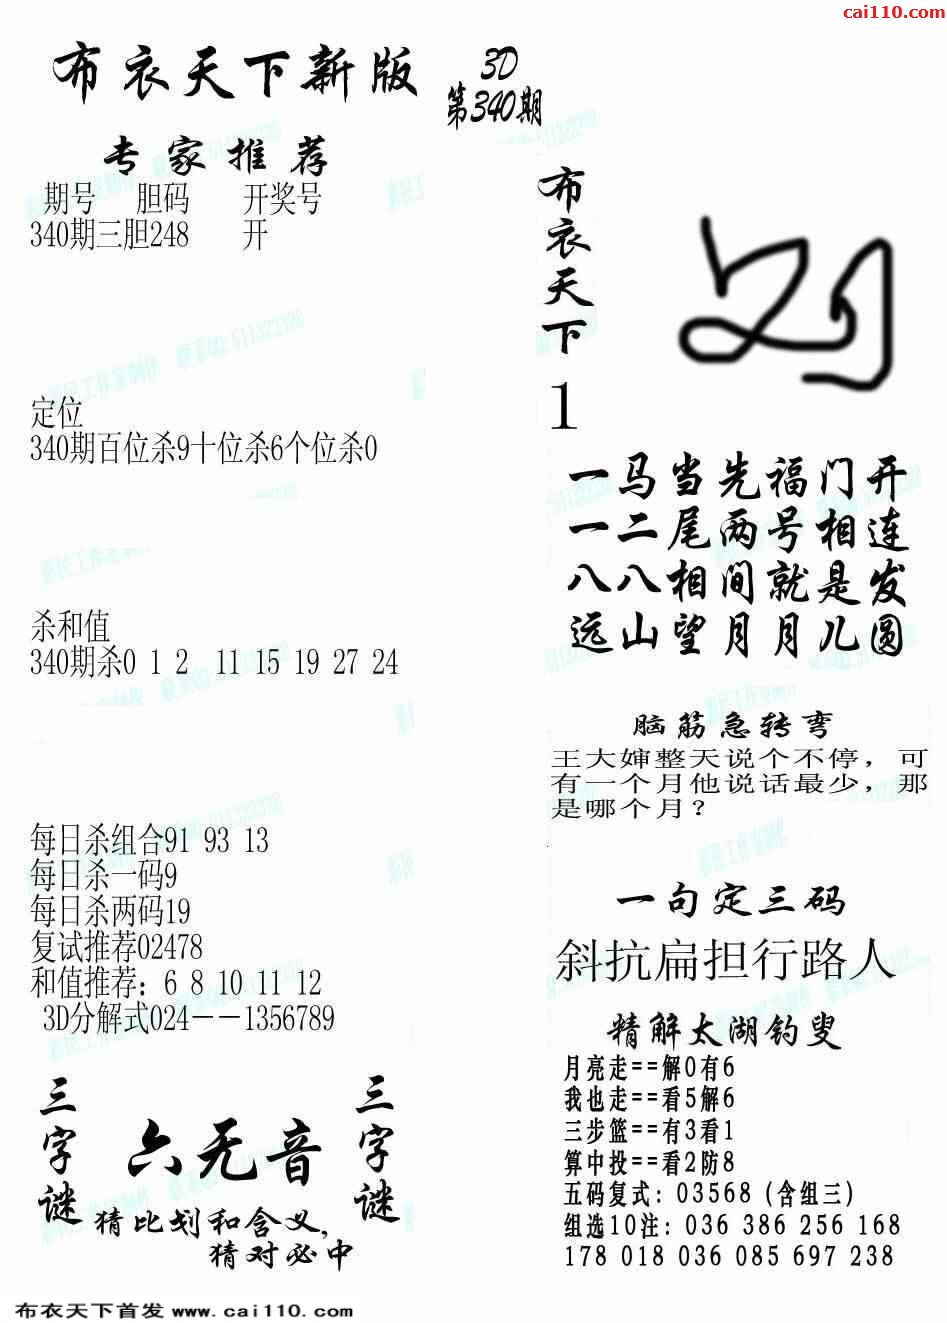 cai110.com
布衣天下新版
3D
第340期
专家推荐
期号 胆码 开奖号
340期三胆248 开
定位
340期百位杀9十位杀6个位杀0
杀和值
340期杀0 1 2 11 15 19 27 24
每日杀组合91 93 13
每日杀一码9
每日杀两码19
复试推荐02478
和值推荐：6 8 10 11 12
3D分解式024－－1356789
三字谜
六无音
三字谜
猜比划和含义,
猜对必中
布衣天下
1
一马当先福门开
一二尾两号相连
八八相间就是发
远山望月月儿圆
脑筋急转弯
王大婶整天说个不停，可
有一个月他说话最少，那
是哪个月？
一句定三码
斜抗扁担行路人
精解太湖钓叟
月亮走==解0有6
我也走==看5解6
三步篮==有3看1
算中投==看2防8
五码复式：03568（含组三）
组选10注：036 386 256 168
178 018 036 085 697 238
布衣天下首发 www.cai110.com